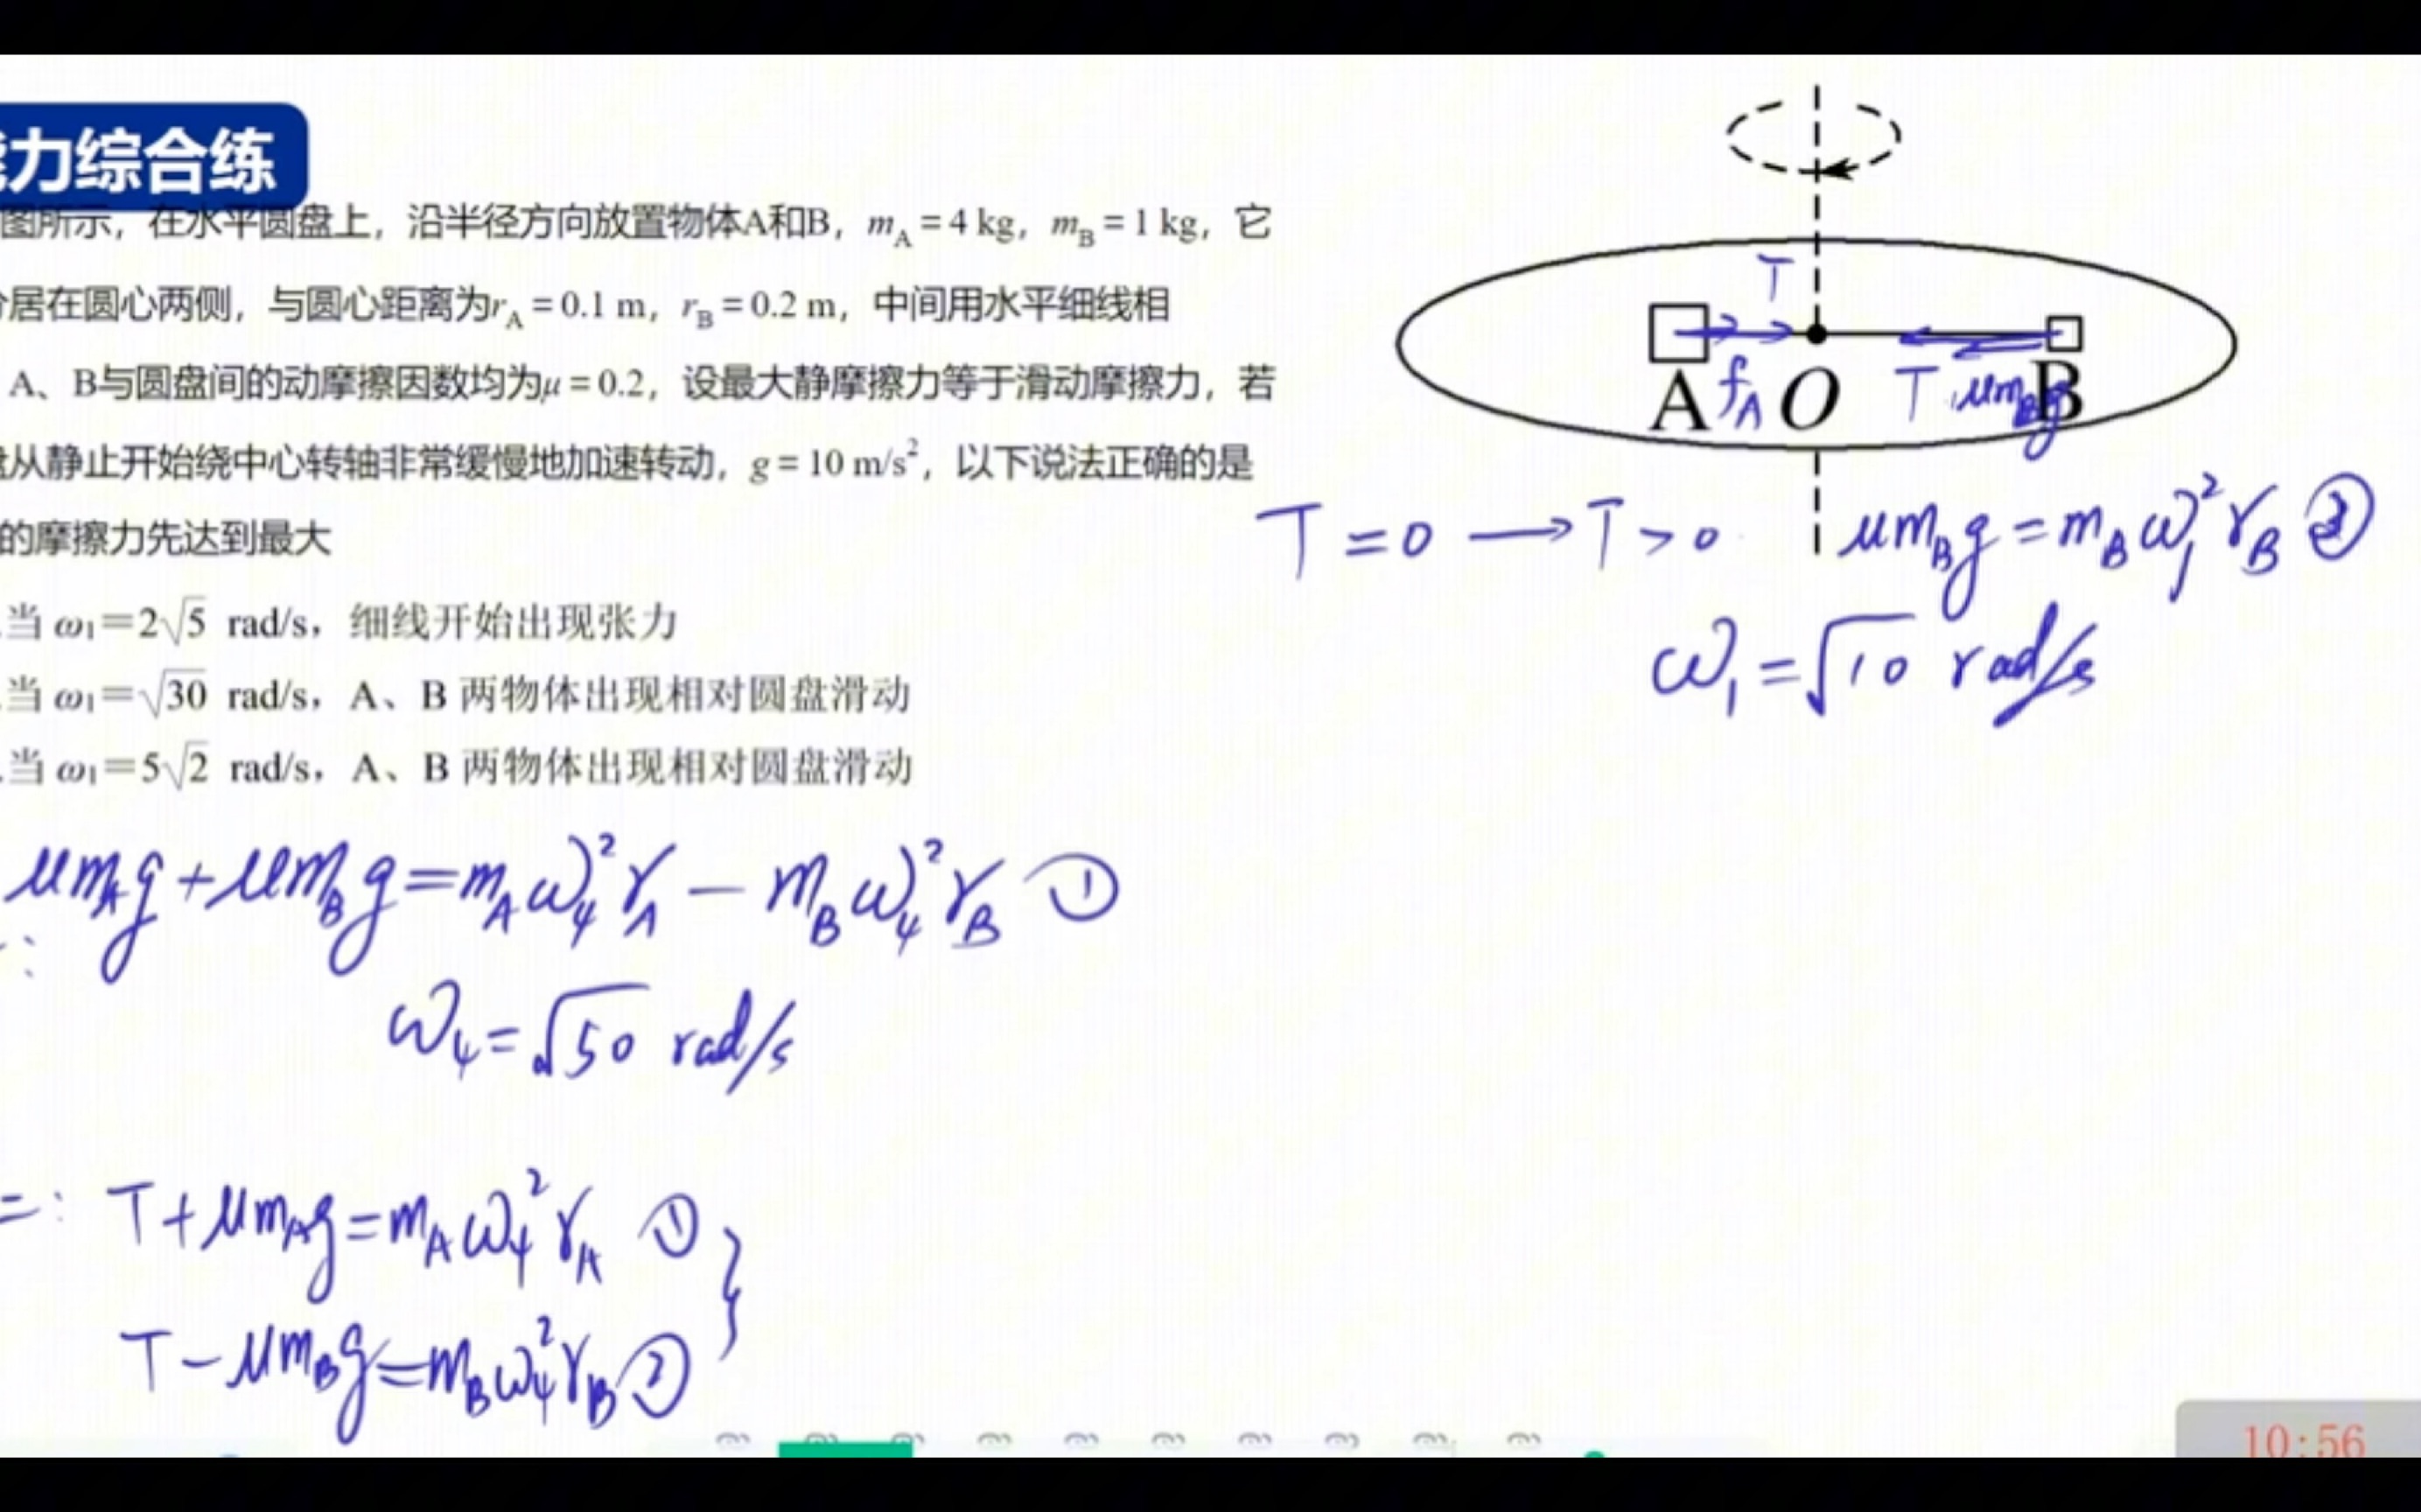 力综合练
图所示，在水平圆盘上，沿半径方向放置物体A和B，m_A = 4 kg，m_B = 1 kg，它
居在圆心两侧，与圆心距离为r_A = 0.1 m，r_B = 0.2 m，中间用水平细线相
A、B与圆盘间的动摩擦因数均为μ = 0.2，设最大静摩擦力等于滑动摩擦力，若
从静止开始绕中心转轴非常缓慢地加速转动，g = 10 m/s²，以下说法正确的是
的摩擦力先达到最大
当 ω₁=2√5 rad/s，细线开始出现张力
当 ω₁=√30 rad/s，A、B 两物体出现相对圆盘滑动
当 ω₁=5√2 rad/s，A、B 两物体出现相对圆盘滑动
T
A f_A O T μm_Bg B
T = 0 → T > 0 μm_Bg = m_Bω₁²r_B ③
ω₁ = √10 rad/s
μm_Ag + μm_Bg = m_Aω₄²r_A − m_Bω₄²r_B ①
ω₄ = √50 rad/s
二: T + μm_Ag = m_Aω₄²r_A ①
T − μm_Bg = m_Bω₄²r_B ②
10:56